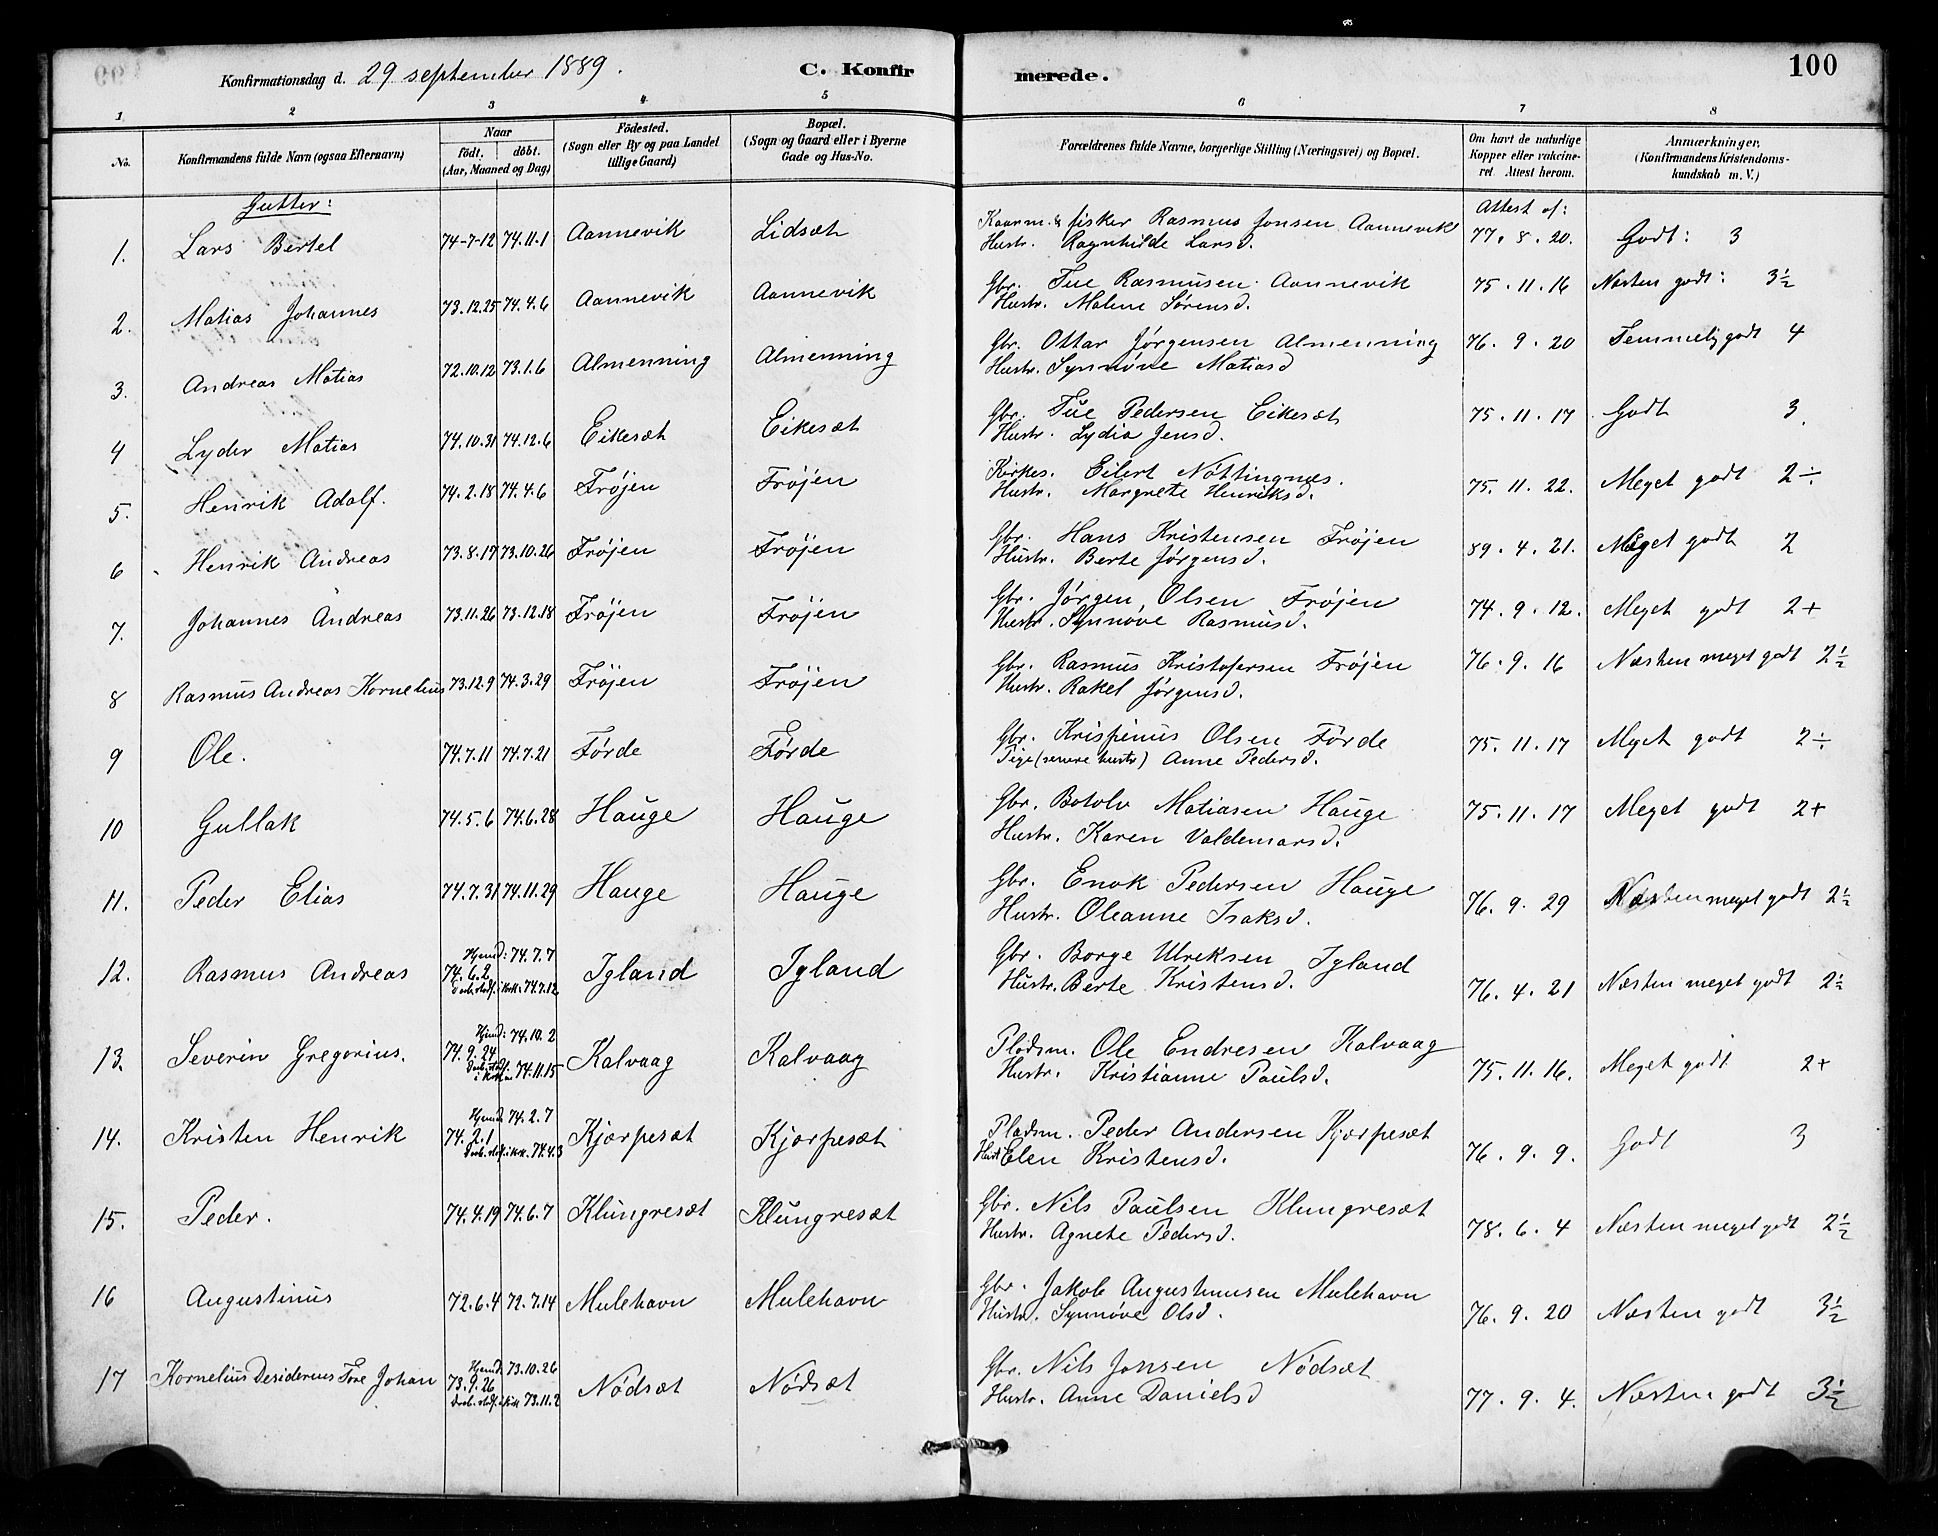 100
Konfirmationsdag d. 29 september 1889.
C. Konfirmerede.
1 2 3 4 5 6 7 8
No.
Konfirmandens fulde Navn (ogsaa Efternavn)
Naar
födt. döbt.
(Aar, Maaned og Dag)
Födested.
(Sogn eller By og paa Landet
tillige Gaard)
Bopæl.
(Sogn og Gaard eller i Byerne
Gade og Hus-No.
Forældrenes fulde Navne, borgerlige Stilling (Næringsvei) og Bopæl.
Om havt de naturlige
Kopper eller vakcine-
ret. Attest herom.
Anmærkninger,
(Konfirmandens Kristendoms-
kundskab m. V.)
Gutter:
Attest af:
1. Lars Bertel 74-7-12 74.11.1 Aannevik Lidsæt Kaarm. & fisker Rasmus Jonsen Aannevik 77.8.20. Godt: 3
Hustr. Ragnhilde Larsd.
2. Matias Johannes 73.12.25 74.4.6 Aannevik Aannevik Gbr. Tue Rasmusen Aannevik 75.11.16 Næsten godt: 3½
Hustr. Malene Sørensd.
3. Andreas Matias 72.10.12 73.1.6 Almenning Almenning Gbr. Ottar Jørgensen Almenning 76.9.20 Temmelig godt 4
Hustr. Synnøve Matiasd
4 Lyder Matias 74.10.31 74.12.6 Eikesæt Eikesæt Gbr. Tue Pedersen Eikesæt 75.11.17 Godt 3
Hustr. Lydia Jensd.
5. Henrik Adolf. 74.2.18 74.4.6 Frøjen Frøjen Kirkes. Eilert Nöttingnes. 75.11.22. Meget godt 2÷
Hustr. Margrete Henriksd.
6 Henrik Andreas 73.8.17 73.10.26 Frøjen Frøjen Gbr. Hans Kristensen Frøjen 89.4.21. Meget godt 2
Hustr. Berte Jørgensd.
7. Johannes Andreas 73.11.26 73.12.18 Frøjen Frøjen Gbr. Jørgen Olsen Frøjen 74.9.12. Meget godt 2+
Hustr. Synnøve Rasmusd.
8 Rasmus Andreas Kornelius 73.12.9 74.3.29 Frøjen Frøjen Gbr. Rasmus Kristofersen Frøjen 76.9.16 Næsten meget godt 2½
Hustr. Rakel Jørgensd.
9 Ole. 74.7.11 74.7.21 Førde Førde Gbr. Krispinus Olsen Førde 75.11.17 Meget godt 2÷
Pige (senere hustr) Anne Pedersd.
10 Gullak 74.5.6 74.6.28 Hauge Hauge Gbr. Botolv Matiasen Hauge 75.11.17 Meget godt 2+
Hustr. Karen Valdemarsd.
11. Peder Elias 74.7.31 74.11.29 Hauge Hauge Gbr. Enok Pedersen Hauge 76.9.29 Næsten meget godt 2½
Hustr. Oleanne Isaksd.
12. Rasmus Andreas 74.6.2 Hjemd: 74.7.7 Igland Igland Gbr. Borge Ulreksen Igland 76.4.21 Næsten meget godt 2½
Daab. stadf. i kirk. 74.7.12 Hustr. Berte Kristensd.
13. Severin Gregorius. 74.9.24 Hjemd: 74.10.2 Kalvaag Kalvaag Pladsm. Ole Endresen Kalvaag 75.11.16. Meget godt 2+
Daab. stadf. i kirken 74.11.15 Hustr. Kristianne Paulsd.
14. Kristen Henrik 74.2.1 Hjemd. 74.2.7 Kjærpesæt Kjærpesæt Pladsm. Peder Andersen Kjærpesæt 76.9.9. Godt 3
Daab. stadf. i kirk. 74.4.3 Hustr Elen Kristensd.
15. Peder. 74.4.19 74.6.7 Klungresæt Klungresæt Gbr. Nils Paulsen Klungresæt 78.6.4 Næsten meget godt 2½
Hustr. Agnete Pedersd.
16 Augustinus 72.6.4 72.7.14 Mulehavn Mulehavn Gbr. Jakob Augustinusen Mulehavn 76.9.20 Næsten godt 3½
Hustr. Synnøve Olsd.
17 Kornelius Desiderius Tore Johan 73.9.26 Hjemd. 73.10.26 Nødsæt Nødsæt Gbr. Nils Jonsen Nødsæt 77.9.4. Næsten godt 3½
Daab. stadf. 73.11.2 Hustr. Anne Danielsd